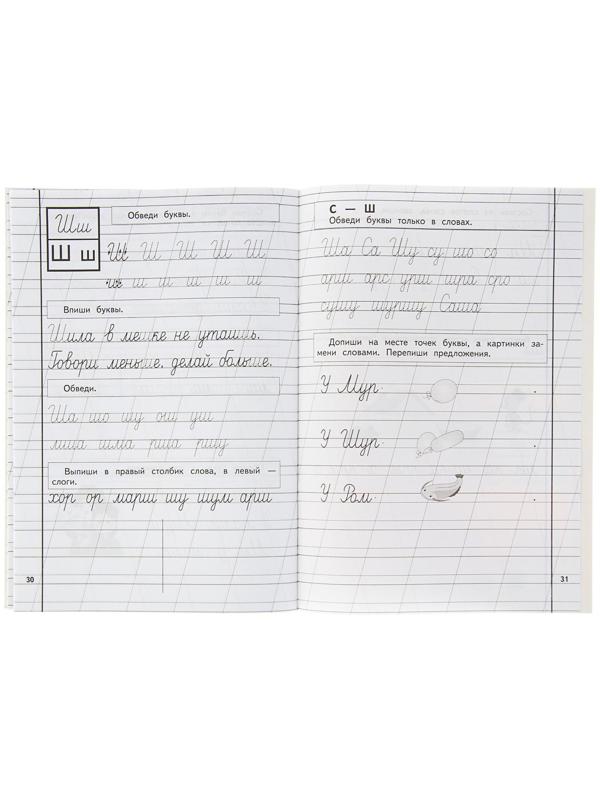 Шш
Ш ш
Обведи буквы.
Ш Ш Ш Ш Ш
ш ш ш ш ш ш
Впиши буквы.
Шила в мешке не утаишь.
Говори меньше, делай больше.
Обведи.
Ша шо шу ош уш
Выпиши в правый столбик слова, в левый —
слоги.
хор ор марш шу шум арш
30
С — Ш
Обведи буквы только в словах.
Ша Са Шу су шо со
арш арс урш шра сро
сушу шуршу Саша
Допиши на месте точек буквы, а картинки за-
мени словами. Перепиши предложения.
У Мур·
У Шур·
У Ром·
31